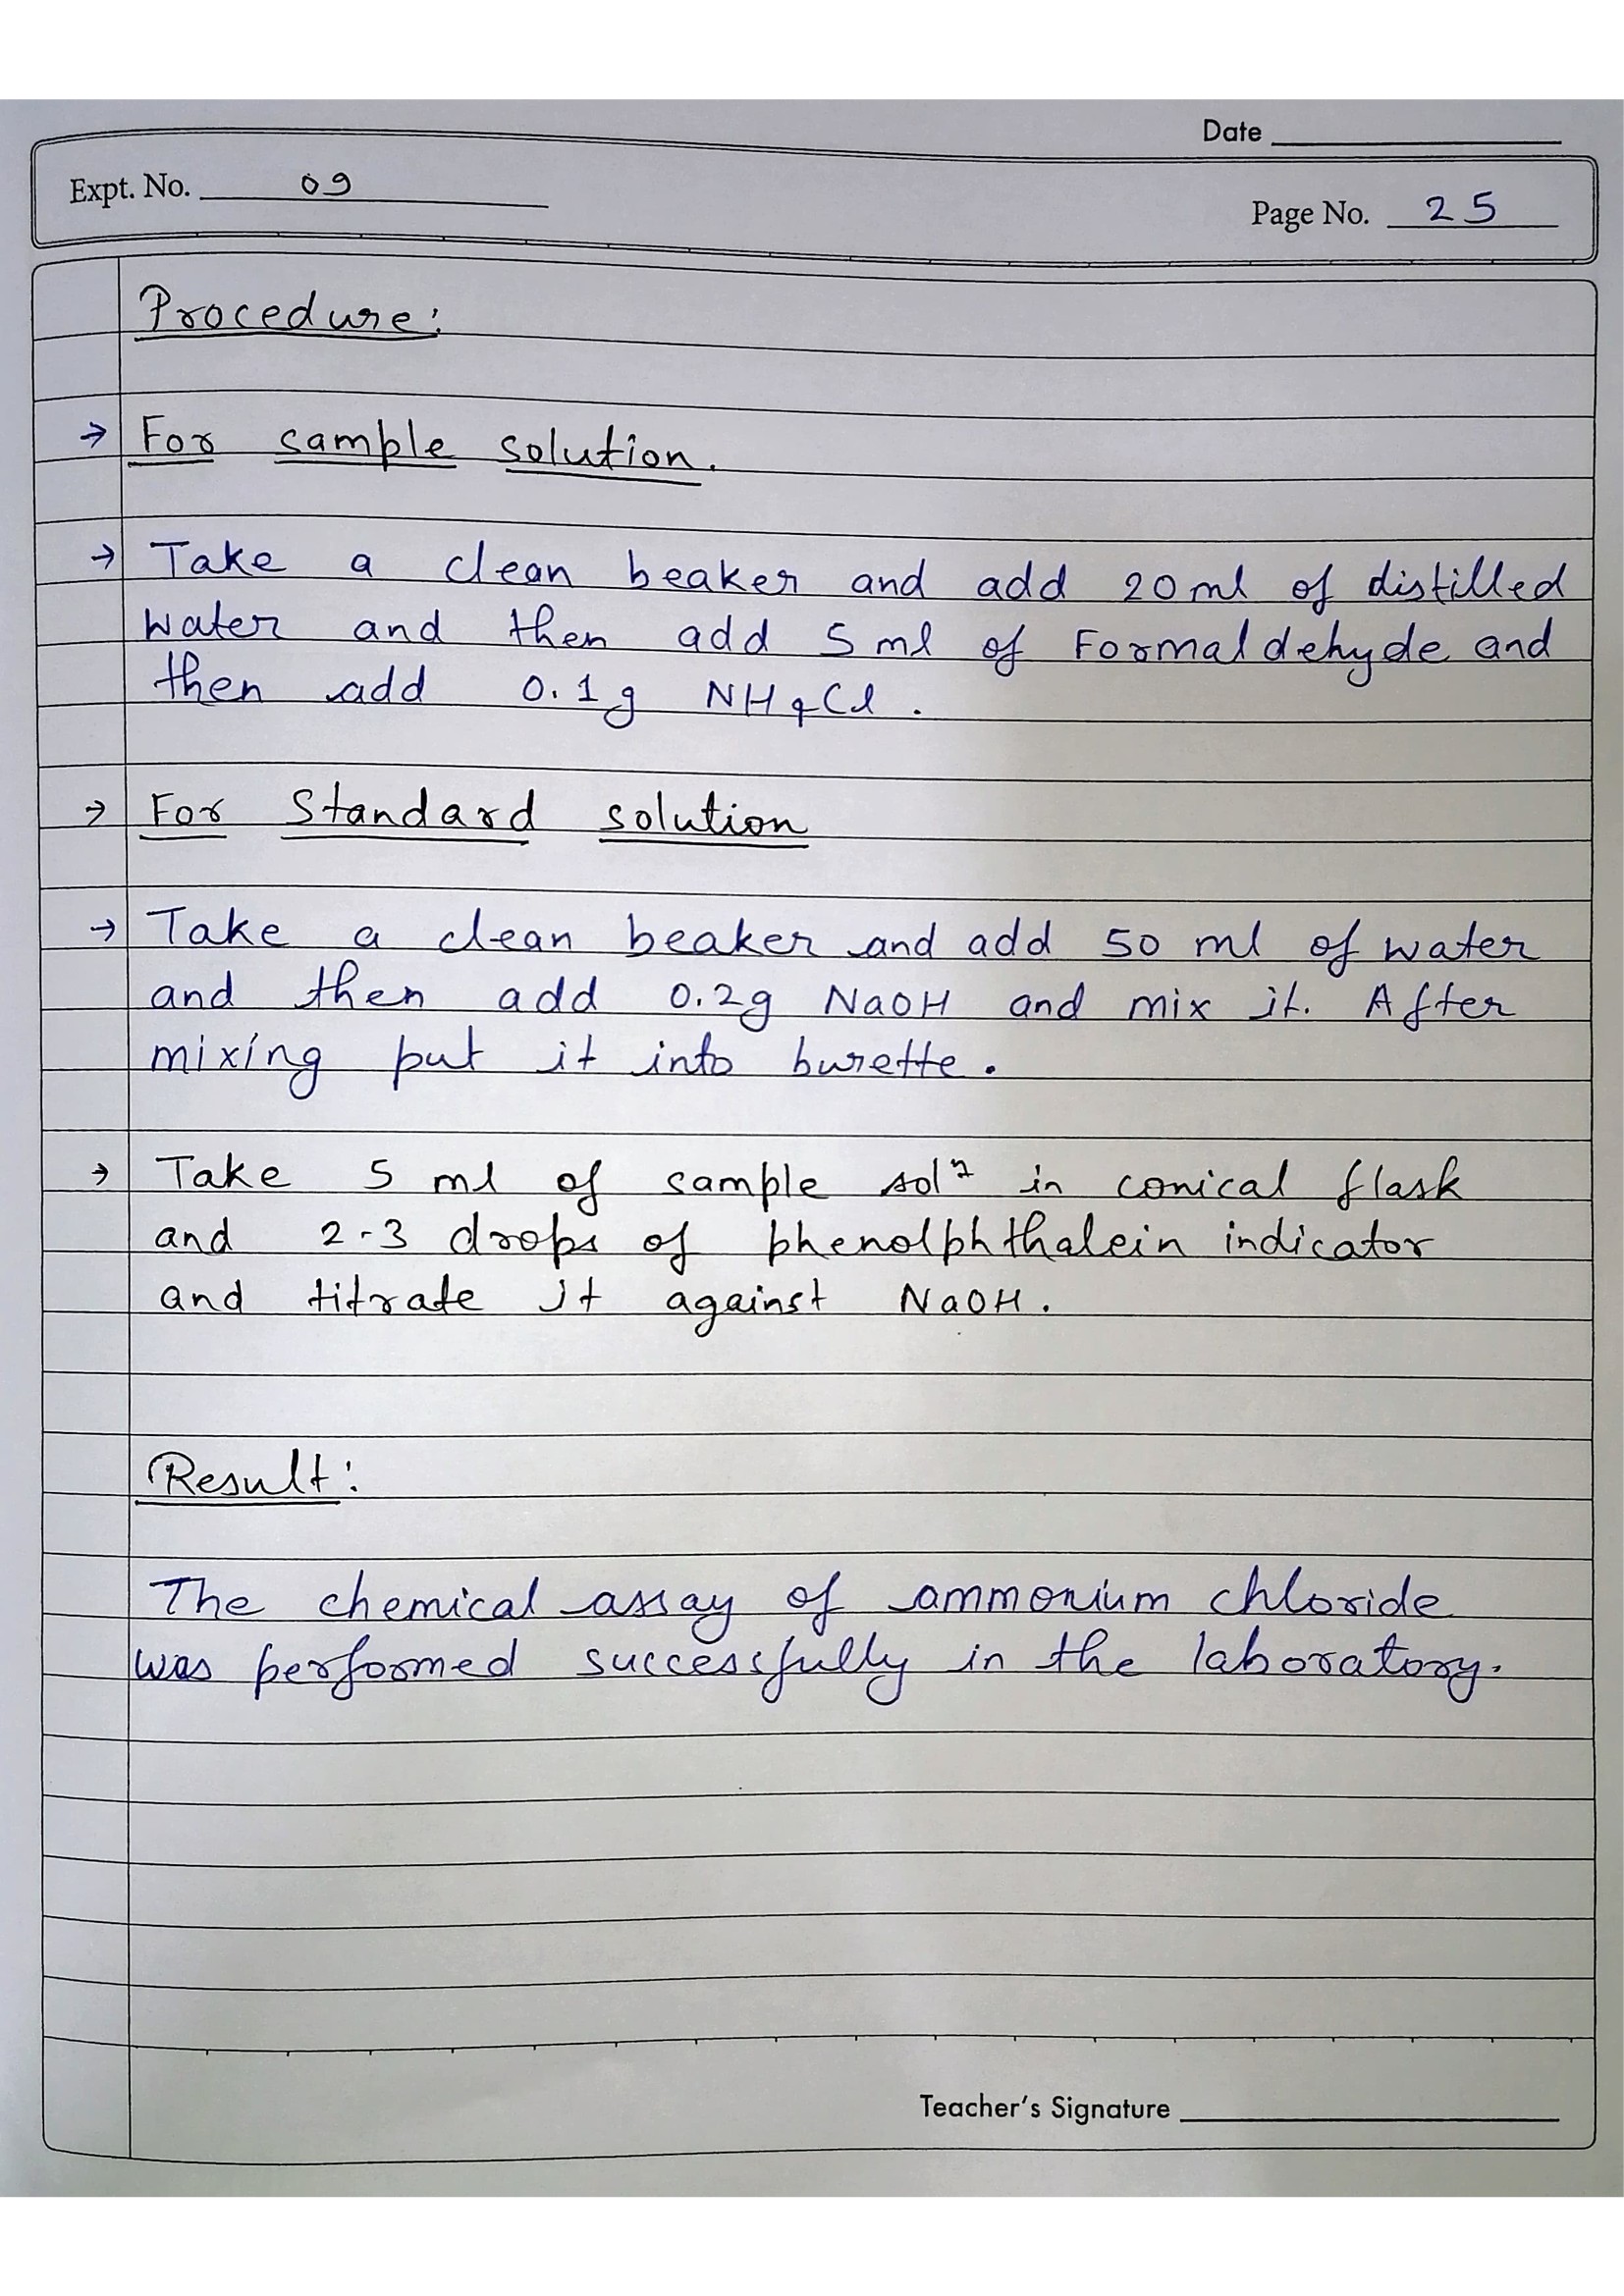 Date
Expt. No. 09
Page No. 25
Procedure:
→ For sample solution.
→ Take a clean beaker and add 20 ml of distilled
water and then add 5 ml of Formaldehyde and
then add 0.1g NH4Cl.
→ For Standard solution
→ Take a clean beaker and add 50 ml of water
and then add 0.2g NaOH and mix it. After
mixing put it into burette.
→ Take 5 ml of sample solⁿ in conical flask
and 2-3 drops of phenolphthalein indicator
and titrate it against NaOH.
Result:
The chemical assay of ammonium chloride
was performed successfully in the laboratory.
Teacher's Signature